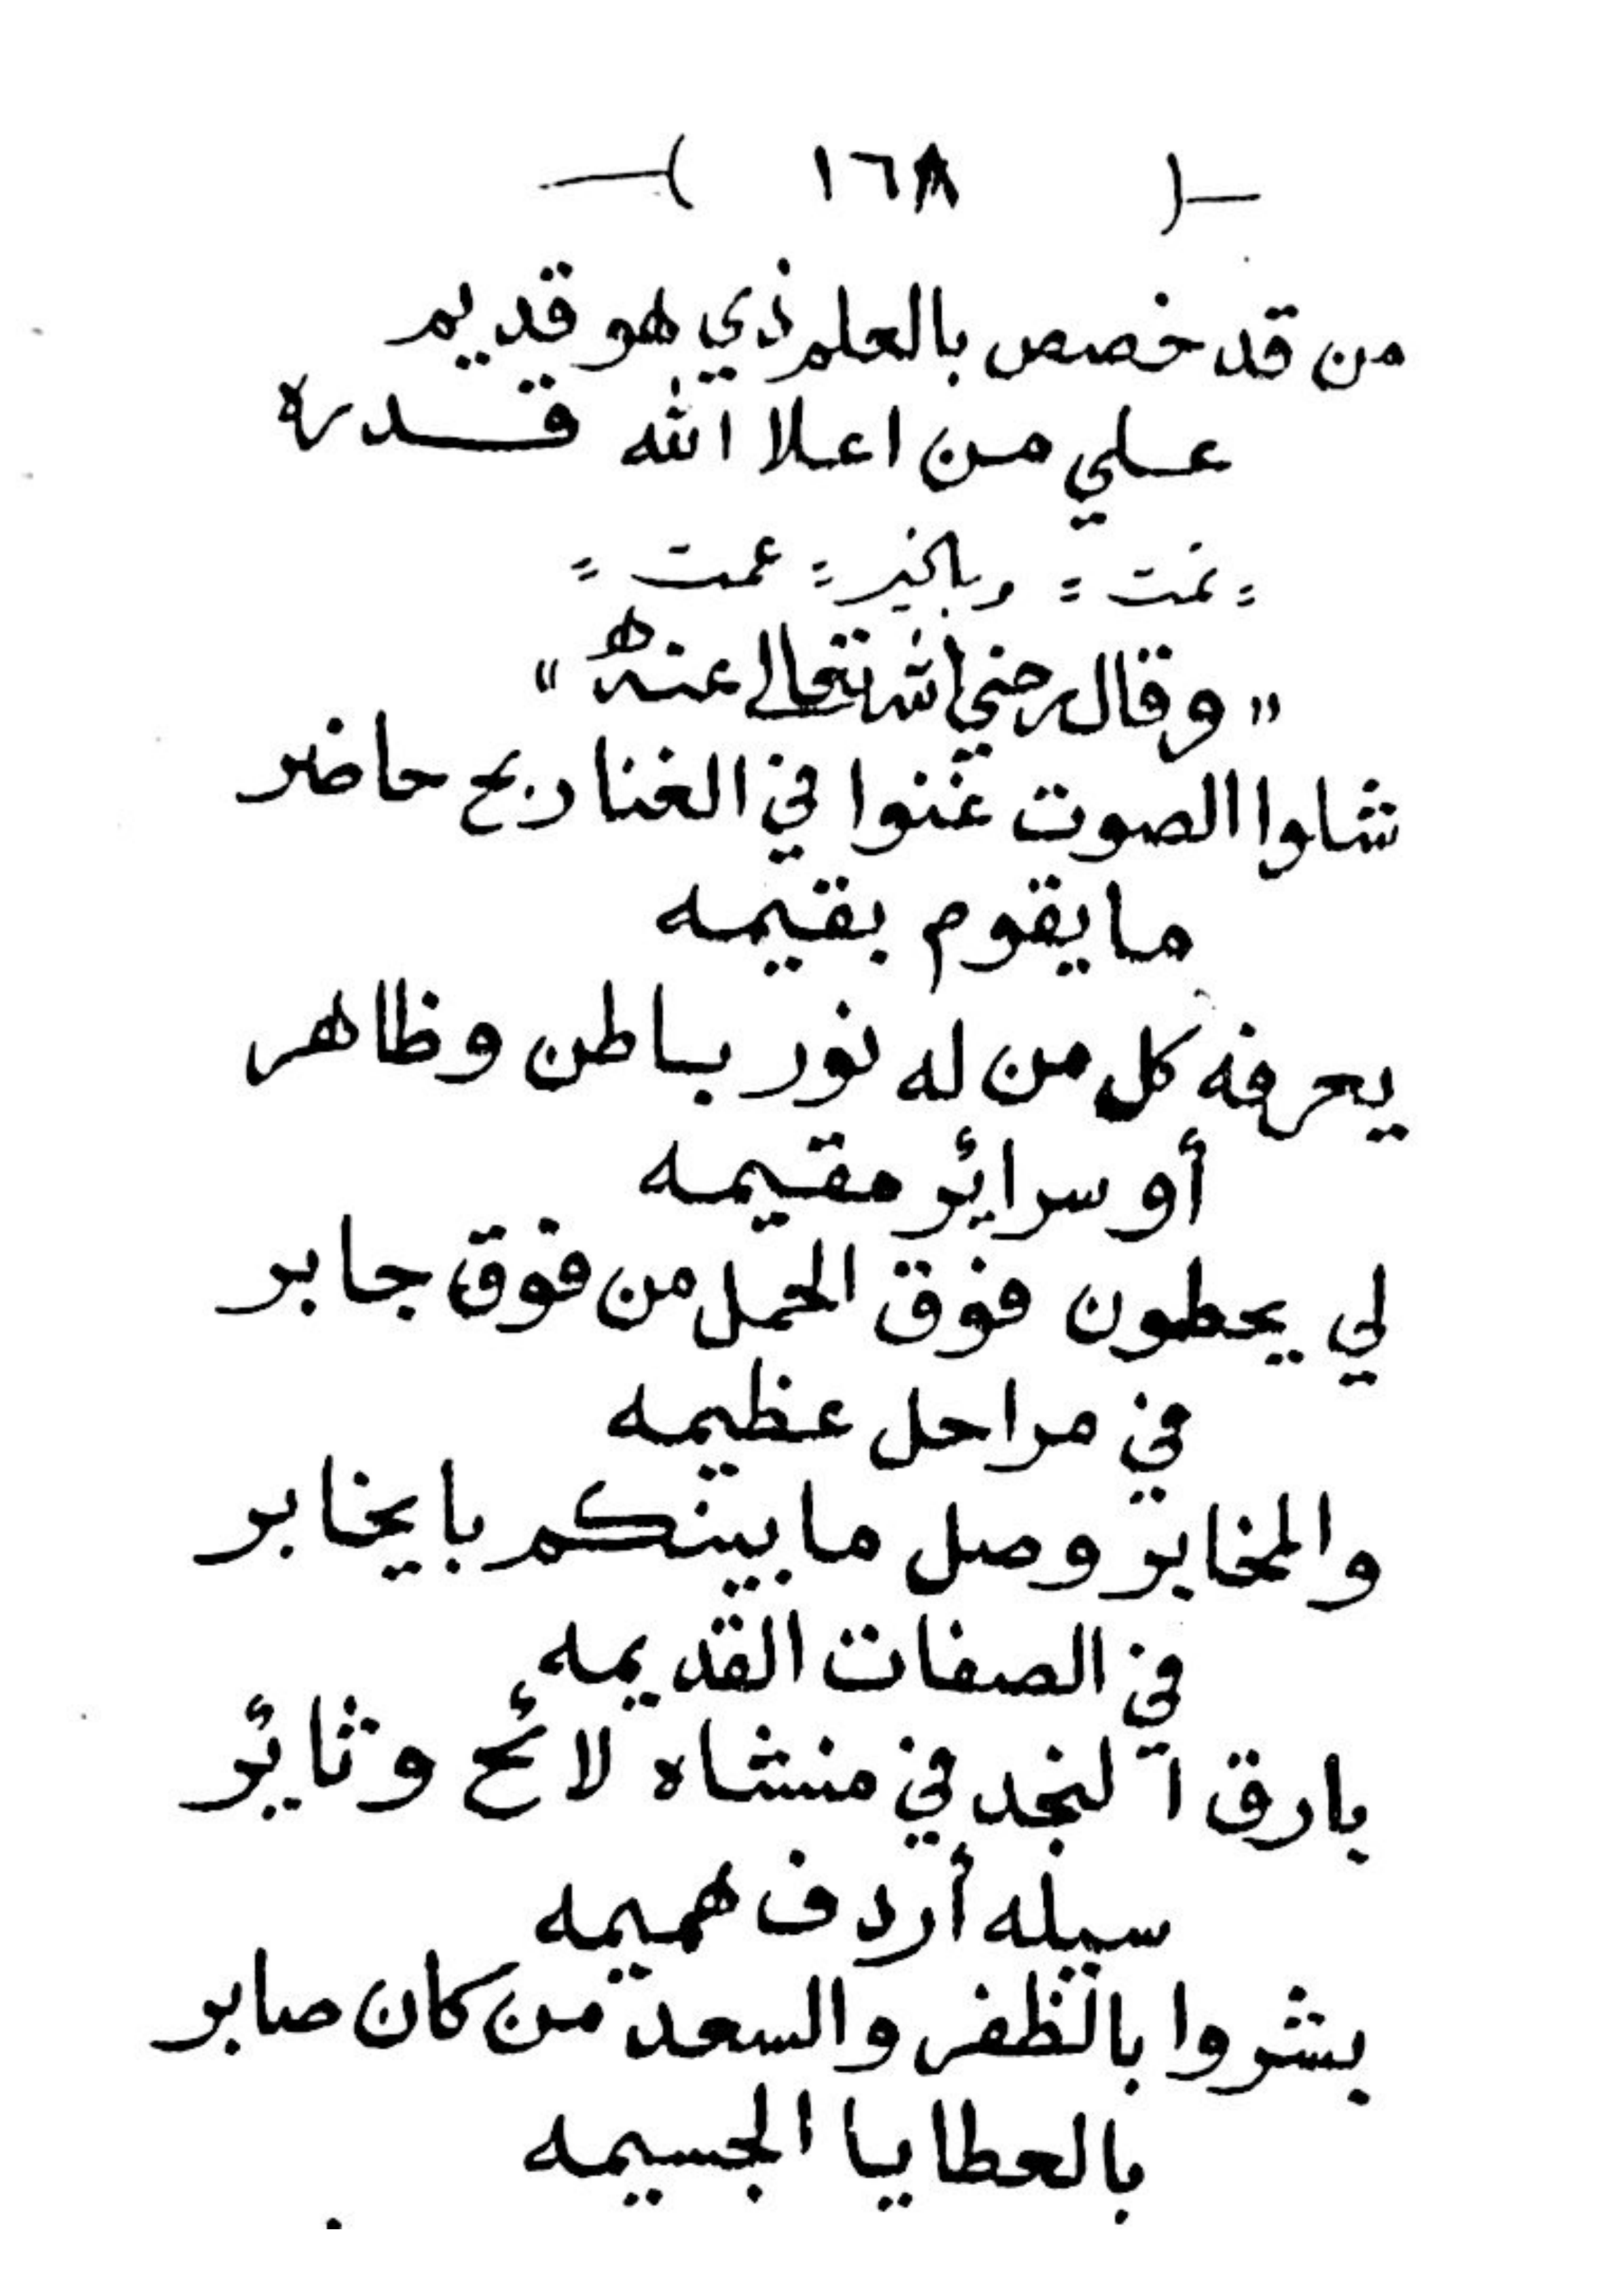 —( ١٦٨ )—
من قد خصص بالعلم ذي هو قديم
علي من اعلا الله قدره
= تمت = وبالخير = عمت =
" وقال رضي الله تعالى عنه "
شلوا الصوت غنوا في الغنا ربح حاضر
ما يقوم بقيمه
يعرفه كل من له نور باطن وظاهر
أو سرائر مقيمه
لي يحطون فوق الحمل من فوق جابر
في مراحل عظيمه
والمخابر وصل ما بينكم با يخابر
في الصفات القديمه
بارق النجد في منشاه لائح وثائر
سيله أردف هميمه
بشروا بالظفر والسعد من كان صابر
بالعطايا الجسيمه